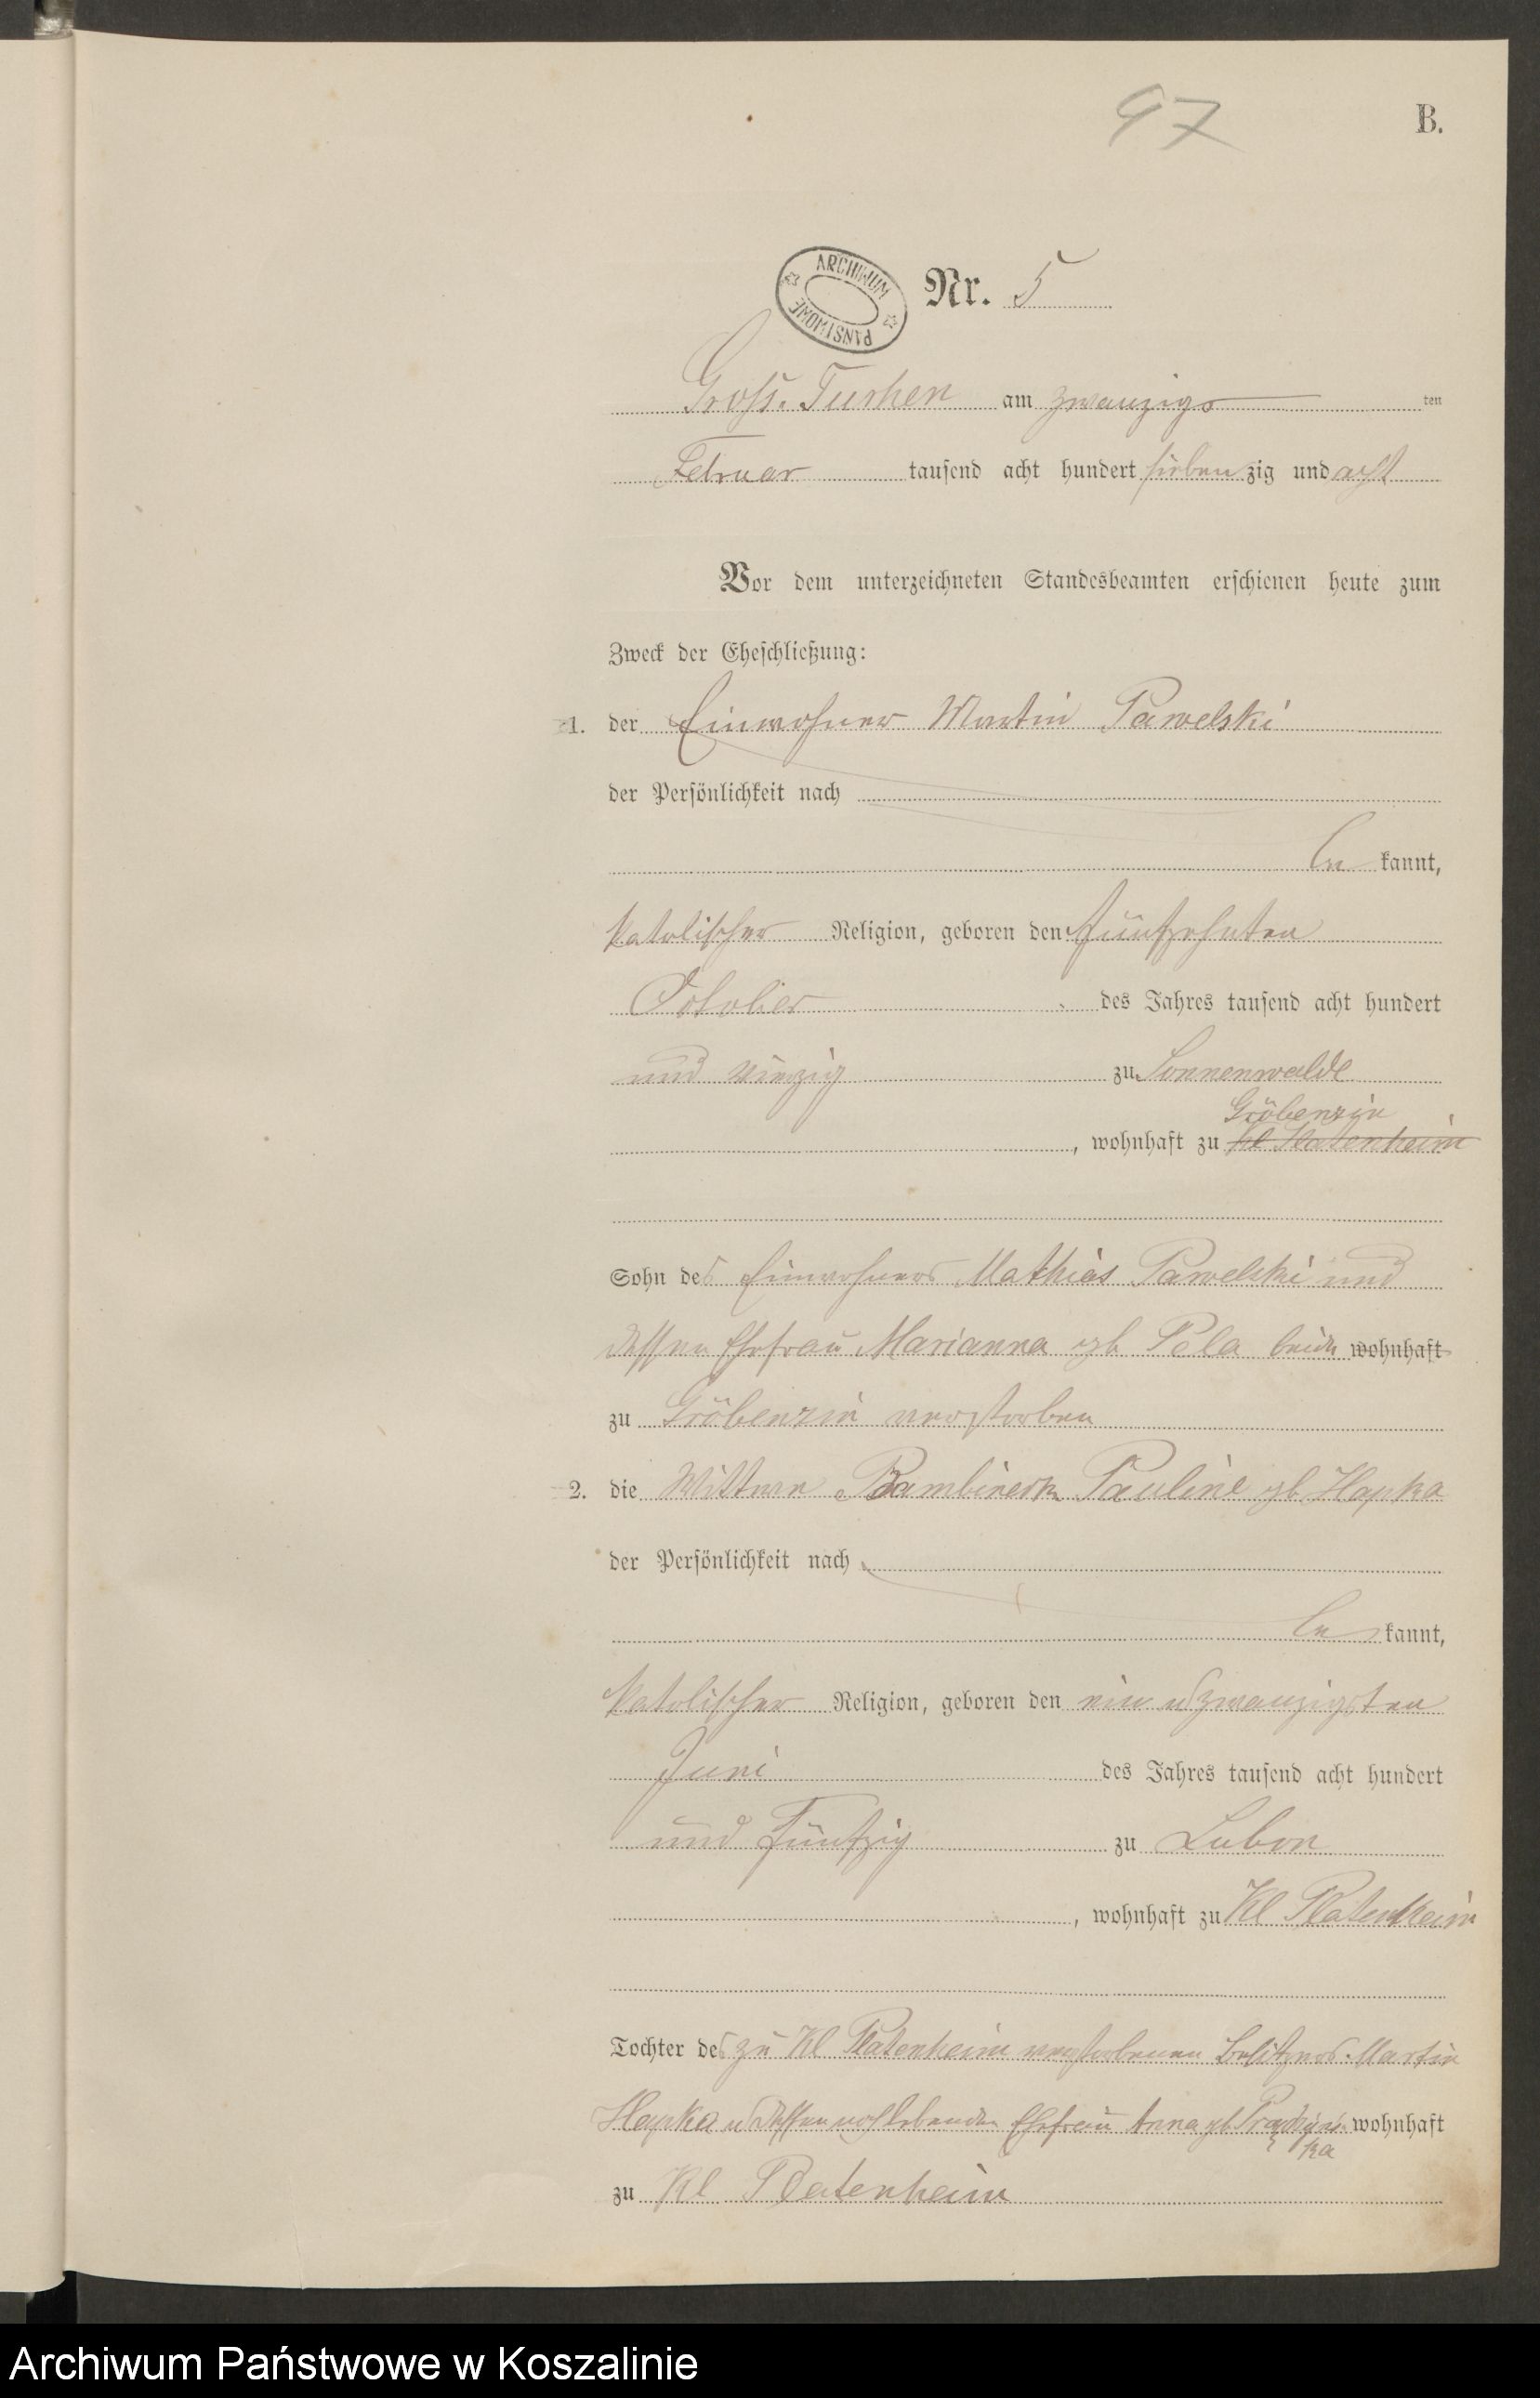 97
B.
ARCHIWUM PAŃSTWOWE
Nr. 5
Gross. Tuchen am zwanzigs ten
Februar tausend acht hundert siebenzig und acht
Vor dem unterzeichneten Standesbeamten erschienen heute zum
Zweck der Eheschließung:
1. der Einwohner Martin Pawelski
der Persönlichkeit nach
be kannt,
katolischer Religion, geboren den fünfzehnten
October des Jahres tausend acht hundert
und vierzig zu Sonnenwalde
Gröbenzin
, wohnhaft zu Kl Platenheim
Sohn des Einwohners Mathias Pawelski und
dessen Ehefrau Marianna gb Pela beide wohnhaft
zu Gröbenzin verstorben
2. die Wittwe Pauline gb Hapka
der Persönlichkeit nach
be kannt,
katolischer Religion, geboren den ein u zwanzigsten
Juni des Jahres tausend acht hundert
und fünfzig zu Lubon
, wohnhaft zu Kl Platenheim
Tochter des zu Kl Platenheim verstorbenen Besitzers Martin
Hapka u dessen noch lebenden Ehefrau Anna gb wohnhaft
zu Kl Platenheim
Archiwum Państwowe w Koszalinie